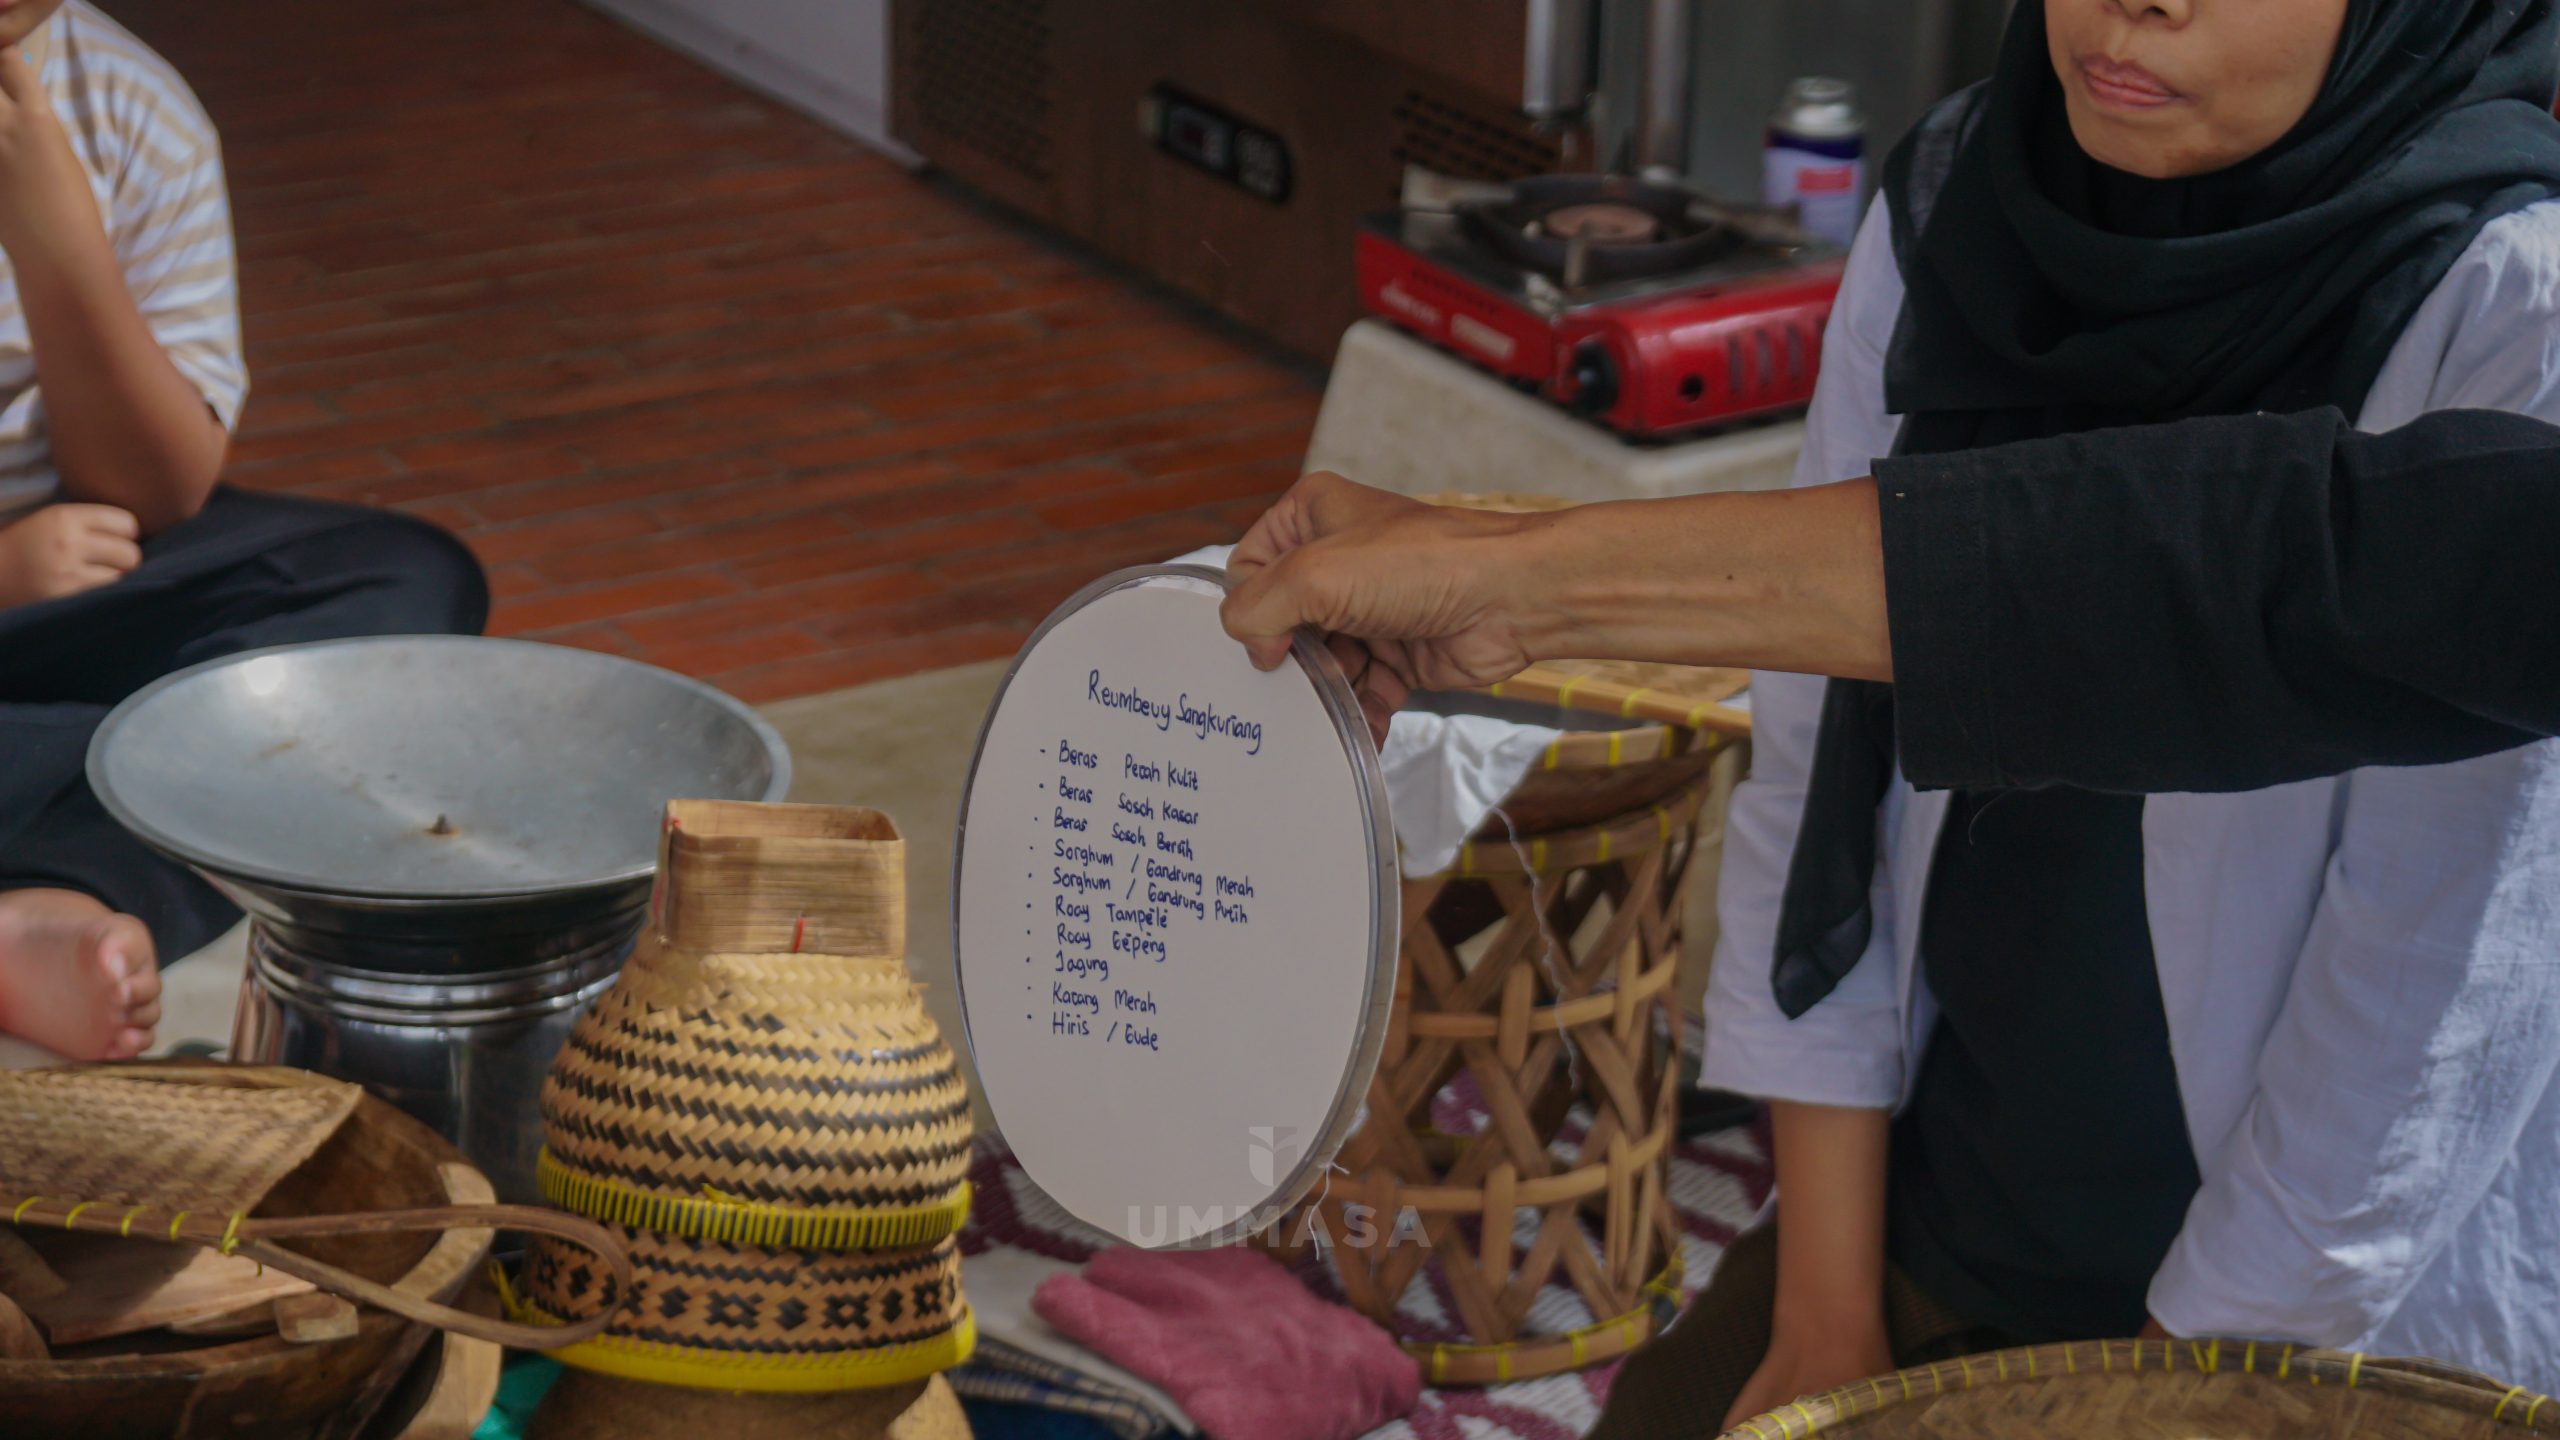 Reumbeuy Sangkuriang
- Beras Pecah Kulit
· Beras Sosoh Kasar
· Beras Sosoh Bersih
· Sorghum / Gandrung Merah
· Sorghum / Gandrung Putih
· Roay Tampélé
· Roay Gépéng
· Jagung
· Kacang Merah
· Hiris / Gude
UMMASA